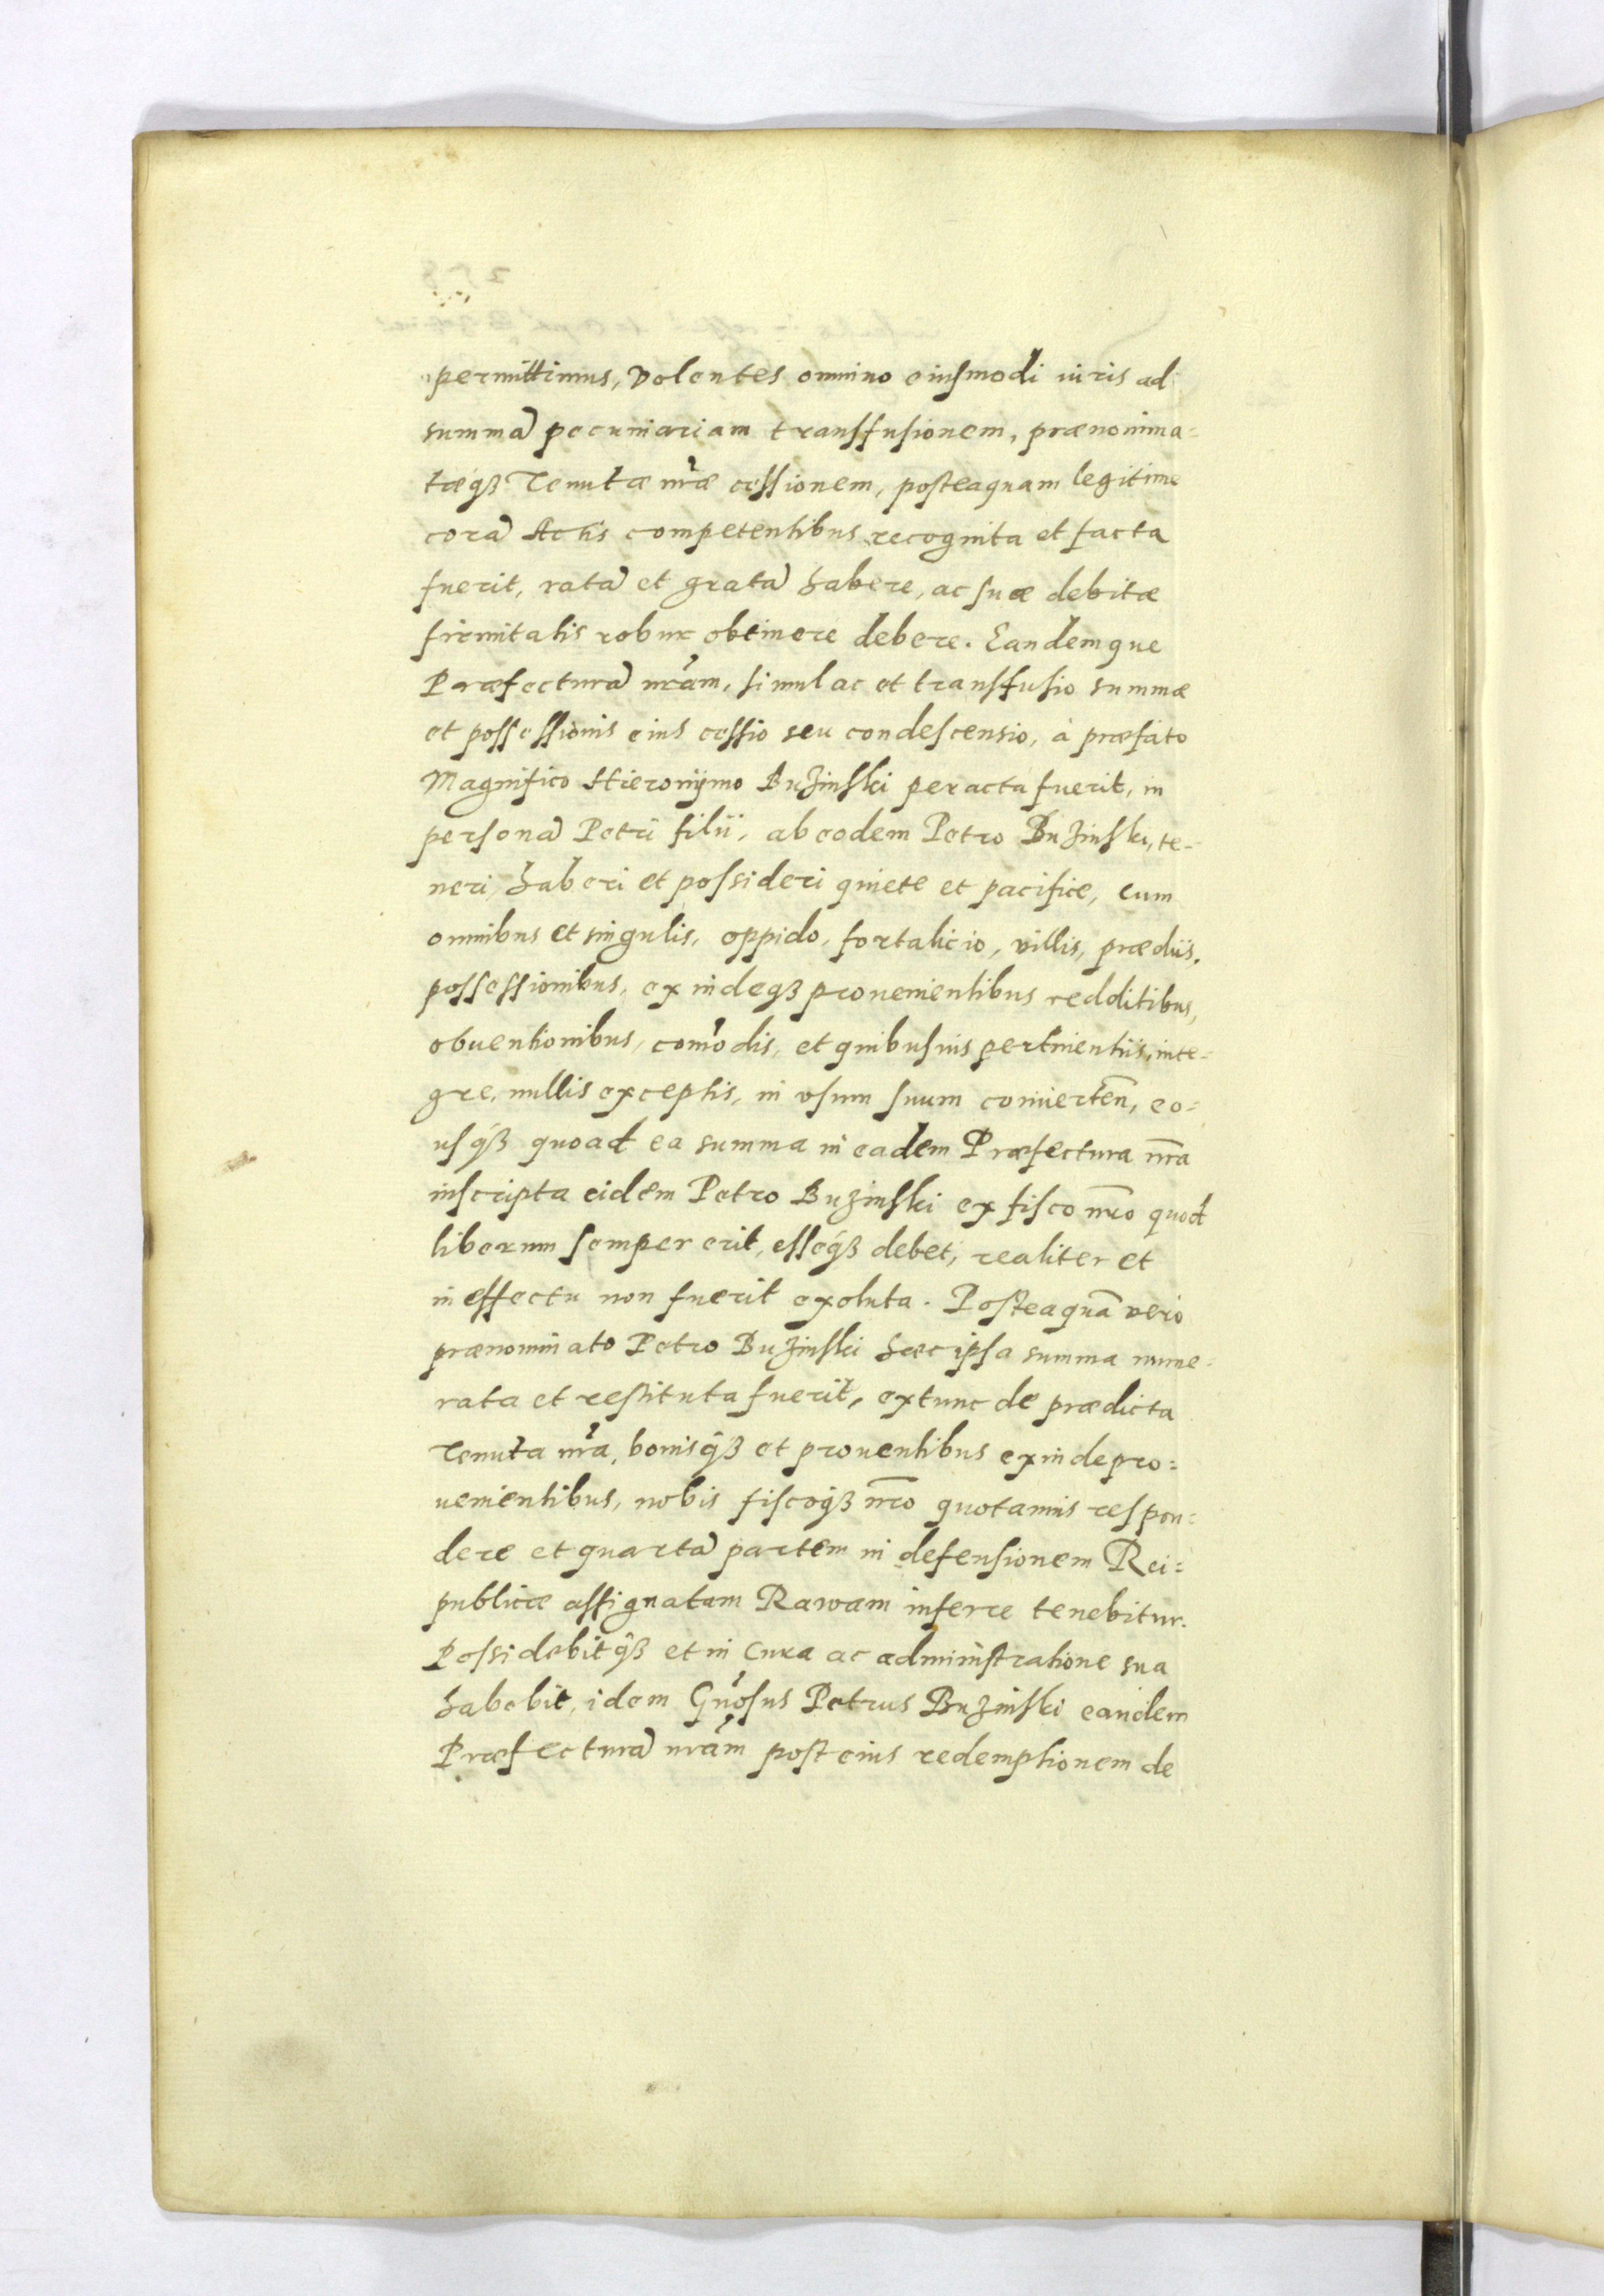 permittimus, Volentes omnino eiusmodi iuris ad
summā pecuniariam transfusionem, prænomina=
tæq́ꝫ Tenutæ nr̃æ cessionem, posteaquam legitime
corā Actis competentibus recognita et facta
fuerit, ratā et gratā habere, ac suæ debitæ
firmitatis robur obtinere debere. Eandemque
Præfecturā nr̃am, simulac et transfusio summæ
et possessionis eius cessio seu condescensio, à præfato
Magnifico Hieronÿmo Buzinski peracta fuerit, in
personā Petri filii, ab eodem Petro Buzinski, te-
neri, haberi et possideri quiete et pacifice, cum
omnibus et singulis, oppido, fortalicio, villis, prædiis,
possessionibus, exindeqꝫ prouenientibus redditibus,
obuentionibus, com̃odis, et quibusuis pertinentiis, inte=
gre, nullis exceptis, in vsum suum conuerteñ, eo=
usq́ꝫ quoad ea summa in eadem Præfectura nr̃a
inscripta eidem Petro Buzinski ex fisco nr̃o quod
liberum semper erit, esseq́ꝫ debet, realiter et
in effectu non fuerit exoluta. Posteaquā vero
prænominato Petro Buzinski hæc ipsa summa nume=
rata et restituta fuerit, extunc de prædicta
Tenuta nr̃a, bonisq́ꝫ et prouentibus exinde pro=
uenientibus, nobis fiscoq́ꝫ nr̃o quotannis respon=
dere et quartā partem in defensionem Rei=
publicæ assignatam Rawam inferre tenebitur.
Possidebitq́ꝫ et in cura ac administratione sua
habebit, idem Gñosus Petrus Buzinski eandem
Præfecturā nr̃am post eius redemptionem de